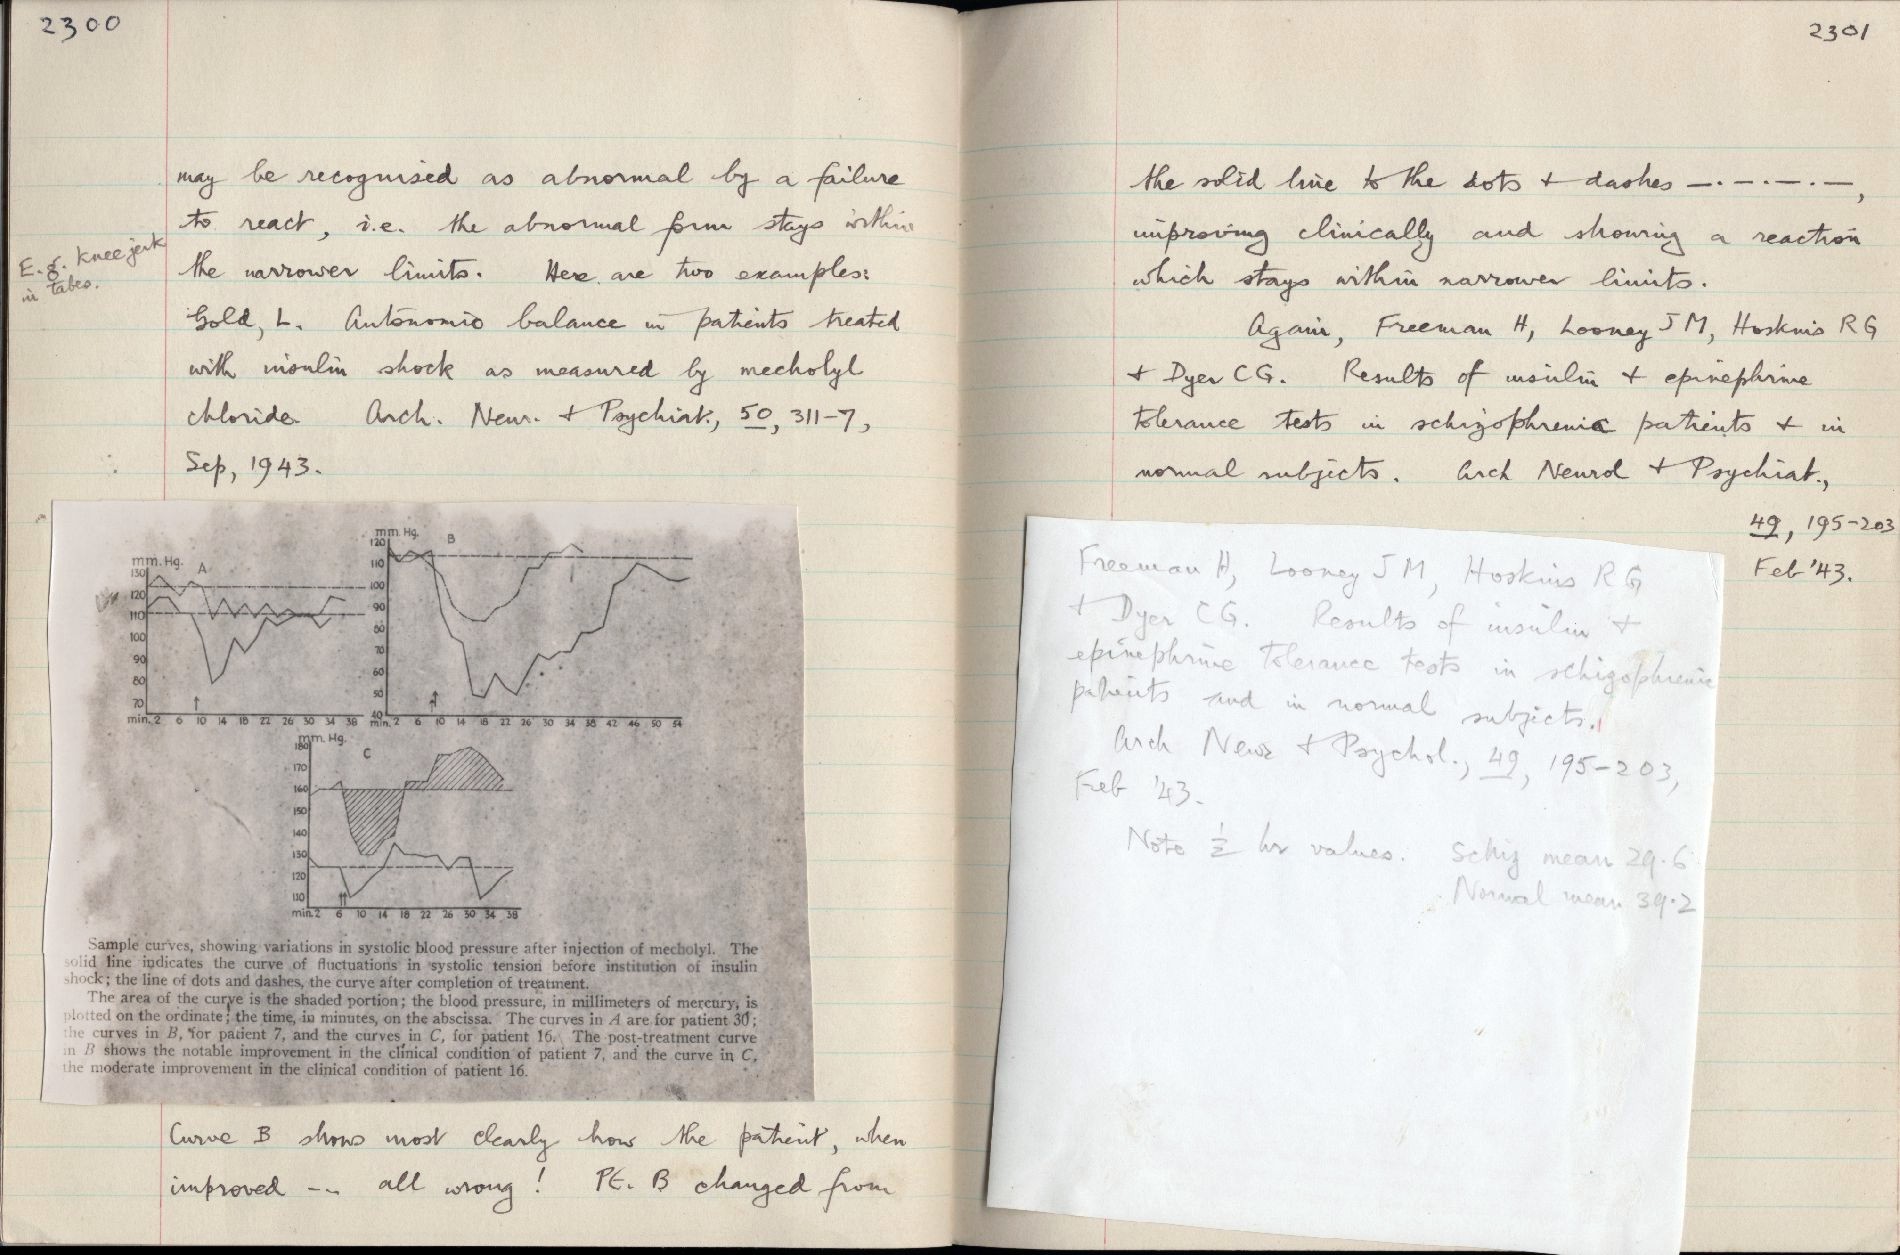 2300
may be recognised as abnormal by a failure
to react, i.e. the abnormal form stays within
E.g. knee jerk
in tabes.
the narrower limits. Here are two examples:
Gold, L. Autonomic balance in patients treated
with insulin shock as measured by mecholyl
chloride. Arch. Neur. + Psychiat., 50, 311-7,
Sep, 1943.
mm. Hg. A
130
120
110
100
90
80
70
min. 2 6 10 14 18 22 26 30 34 38
mm. Hg. B
120
110
100
90
80
70
60
50
40
min. 2 6 10 14 18 22 26 30 34 38 42 46 50 54
mm. Hg. C
180
170
160
150
140
130
120
110
min. 2 6 10 14 18 22 26 30 34 38
Sample curves, showing variations in systolic blood pressure after injection of mecholyl. The
solid line indicates the curve of fluctuations in systolic tension before institution of insulin
shock; the line of dots and dashes, the curve after completion of treatment.
The area of the curve is the shaded portion; the blood pressure, in millimeters of mercury, is
plotted on the ordinate; the time, in minutes, on the abscissa. The curves in A are for patient 30;
the curves in B, for patient 7, and the curves in C, for patient 16. The post-treatment curve
in B shows the notable improvement in the clinical condition of patient 7, and the curve in C,
the moderate improvement in the clinical condition of patient 16.
Curve B shows most clearly how the patient, when
improved --- all wrong! B changed from
2301
the solid line to the dots + dashes —·—·—·—,
improving clinically and showing a reaction
which stays within narrower limits.
Again, Freeman H, Looney J M, Hoskins R G
+ Dyer C G. Results of insulin + epinephrine
tolerance tests in schizophrenic patients + in
normal subjects. Arch Neurol + Psychiat.,
49, 195-203
Feb '43.
Freeman H, Looney J M, Hoskins R G
+ Dyer C G. Results of insulin +
epinephrine tolerance tests in schizophrenic
patients and in normal subjects.
Arch Neur + Psychol., 49, 195-203,
Feb '43.
Note ½ hr values. Schiz mean 29.6
Normal mean 39.2